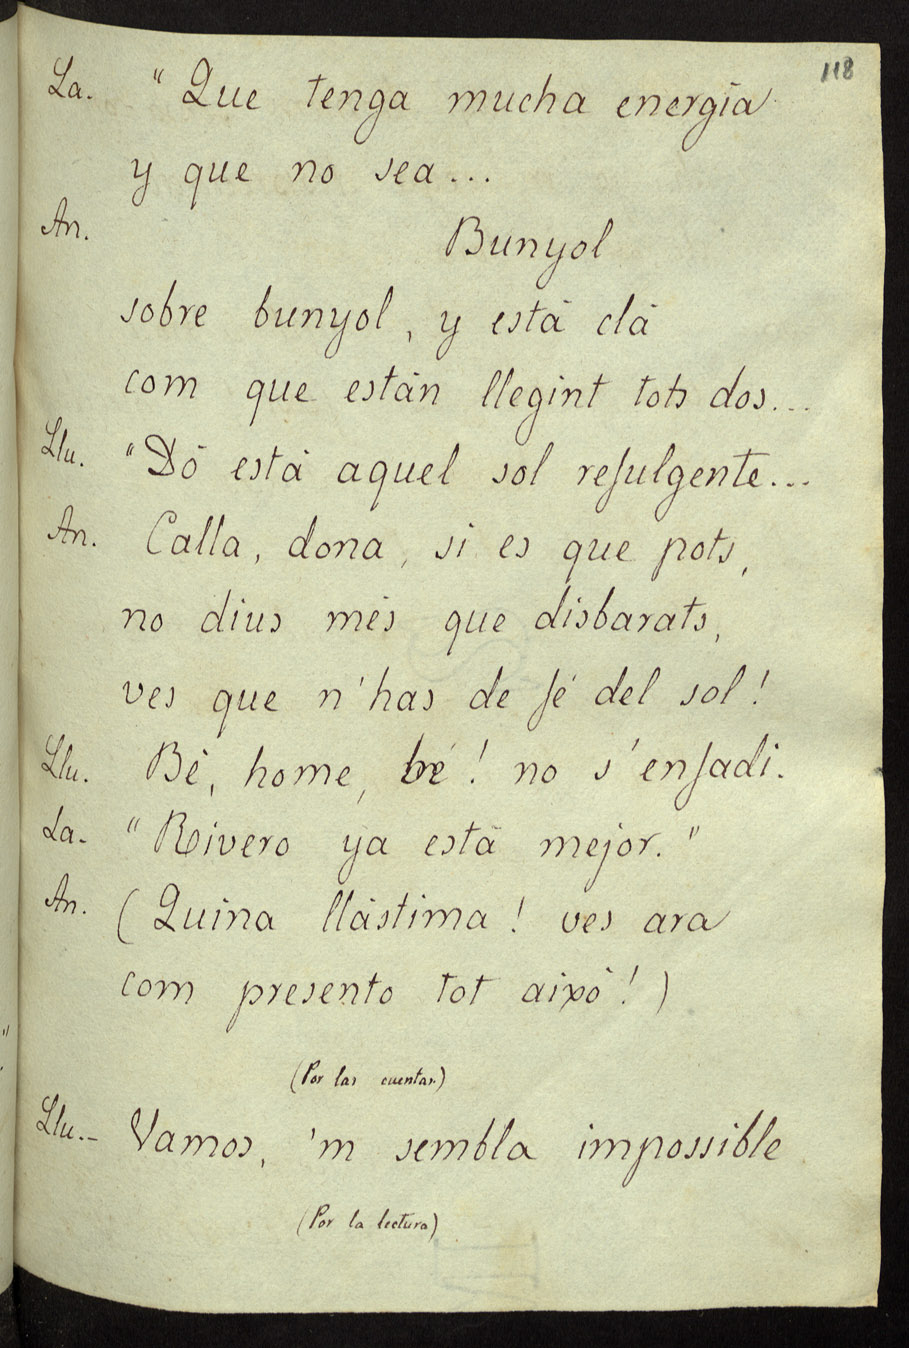 118
La. "Que tenga mucha energía
y que no sea...
An. Bunyol
sobre bunyol, y está clá
com que están llegint tots dos...
Llu. "Dó está aquel sol refulgente...
An. Calla, dona, si es que pots,
no dius més que disbarats,
ves que n'has de fé del sol!
Llu. Bé, home, bé! no s'enfadi.
La. "Rivero ya está mejor."
An. (Quina llástima! ves ara
com presento tot aixó!)
(Por las cuentas)
Llu.- Vamos, 'm sembla impossible
(Por la lectura)